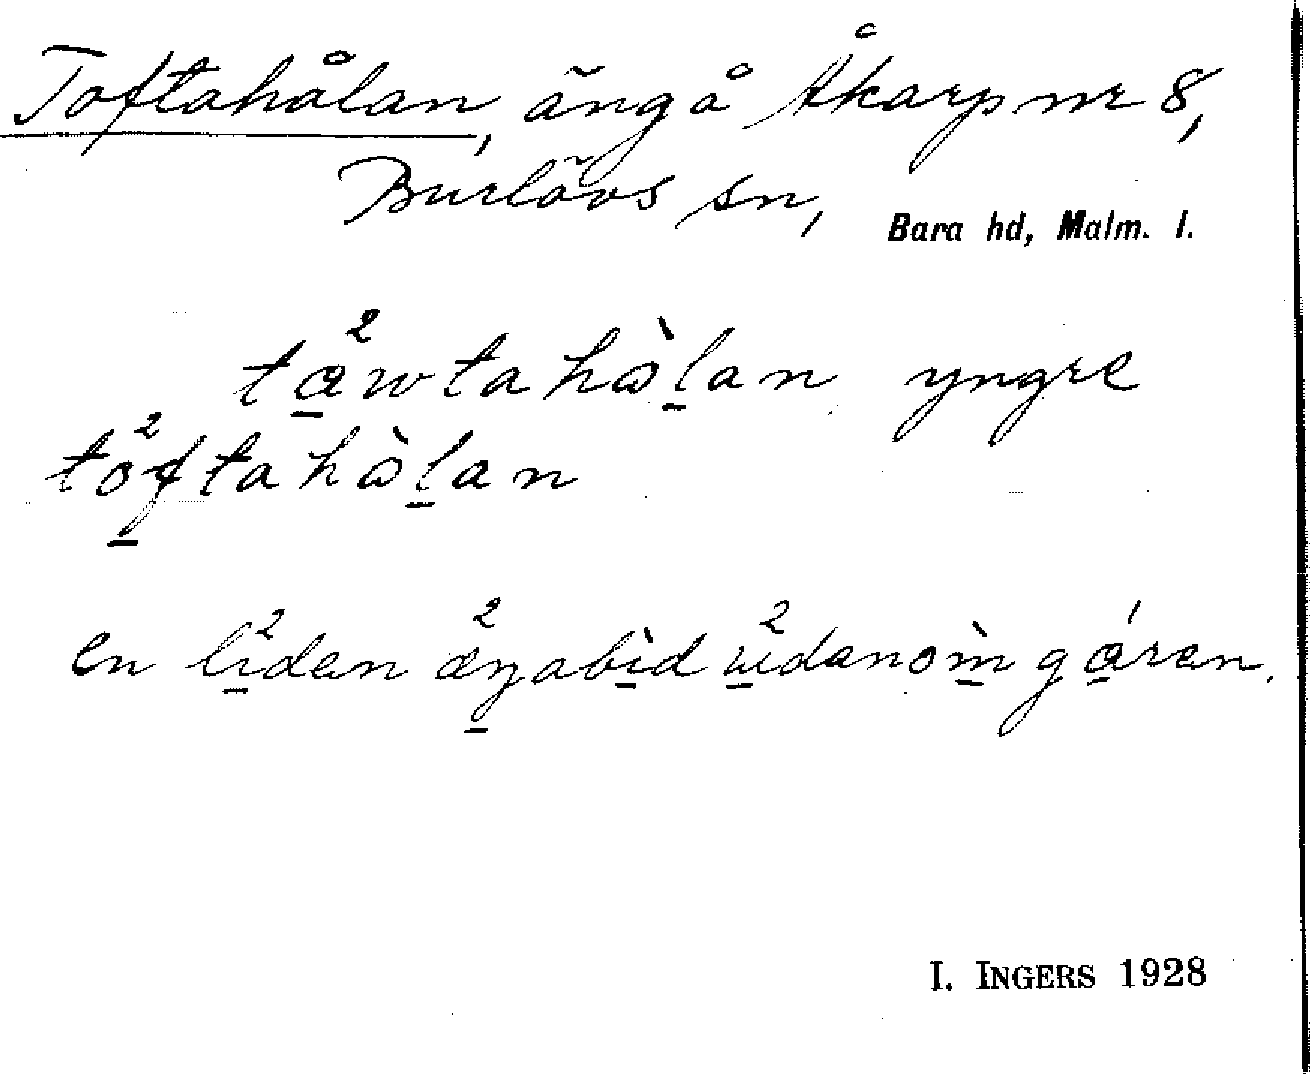 Toftahålan, äng å Åkarp nr 8,
Burlövs sn, Bara hd, Malm. l.
ta̱²wtahὼḻan yngre
to²f̱tahὼḻan
en li̱²den æ²ŋ̱abì̱d u̱²danom̱̀ gá̱ren.
I. INGERS 1928